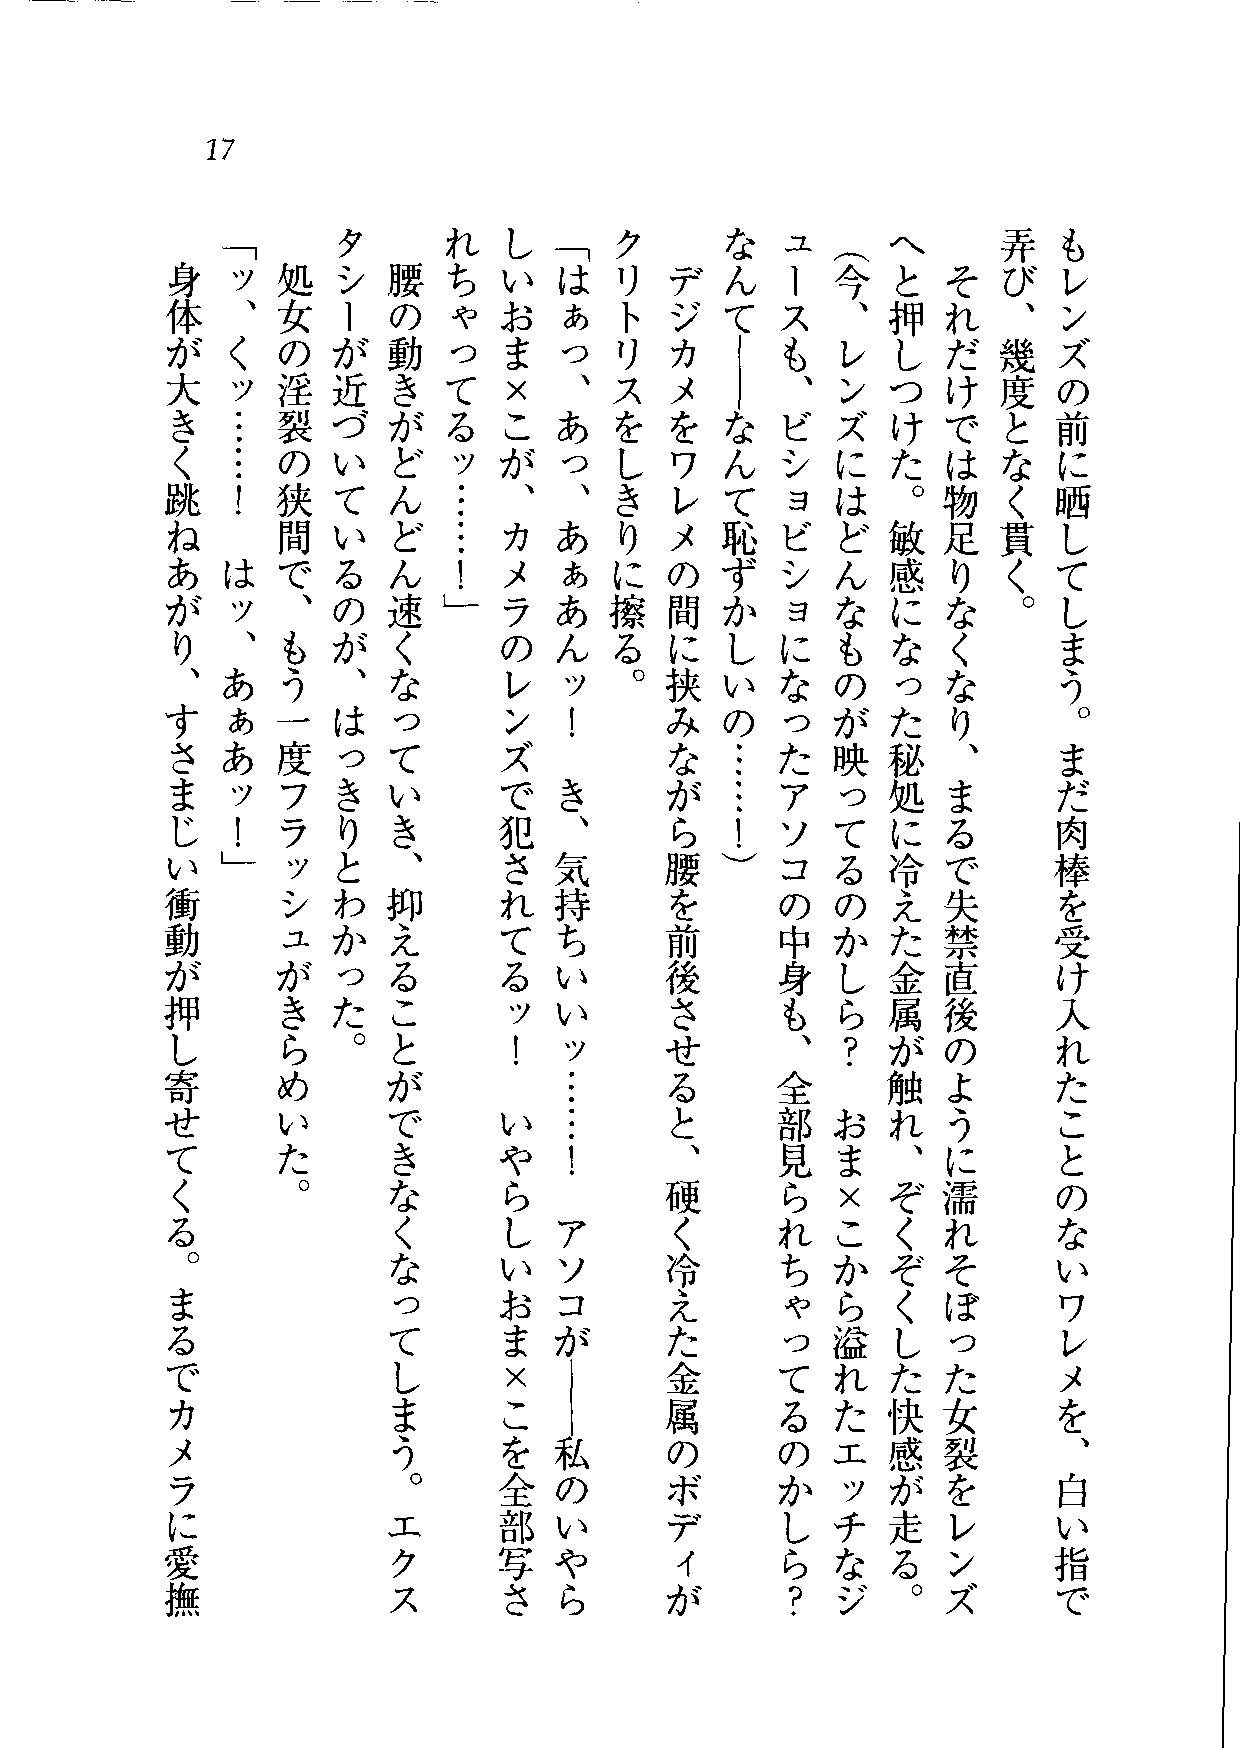 17
もレンズの前に晒してしまう。まだ肉棒を受け入れたことのないワレメを、白い指で
弄び、幾度となく貫く。
それだけでは物足りなくなり、まるで失禁直後のように濡れそぼった女裂をレンズ
へと押しつけた。敏感になった秘処に冷えた金属が触れ、ぞくぞくした快感が走る。
(今、レンズにはどんなものが映ってるのかしら？　おま×こから溢れたエッチなジ
ュースも、ビショビショになったアソコの中身も、全部見られちゃってるのかしら？
なんて――なんて恥ずかしいの……！)
デジカメをワレメの間に挟みながら腰を前後させると、硬く冷えた金属のボディが
クリトリスをしきりに擦る。
「はぁっ、あっ、あぁあんッ！　き、気持ちいいッ……！　アソコが――私のいやら
しいおま×こが、カメラのレンズで犯されてるッ！　いやらしいおま×こを全部写さ
れちゃってるッ……！」
腰の動きがどんどん速くなっていき、抑えることができなくなってしまう。エクス
タシーが近づいているのが、はっきりとわかった。
処女の淫裂の狭間で、もう一度フラッシュがきらめいた。
「ッ、くッ……！　はッ、あぁあッ！」
身体が大きく跳ねあがり、すさまじい衝動が押し寄せてくる。まるでカメラに愛撫